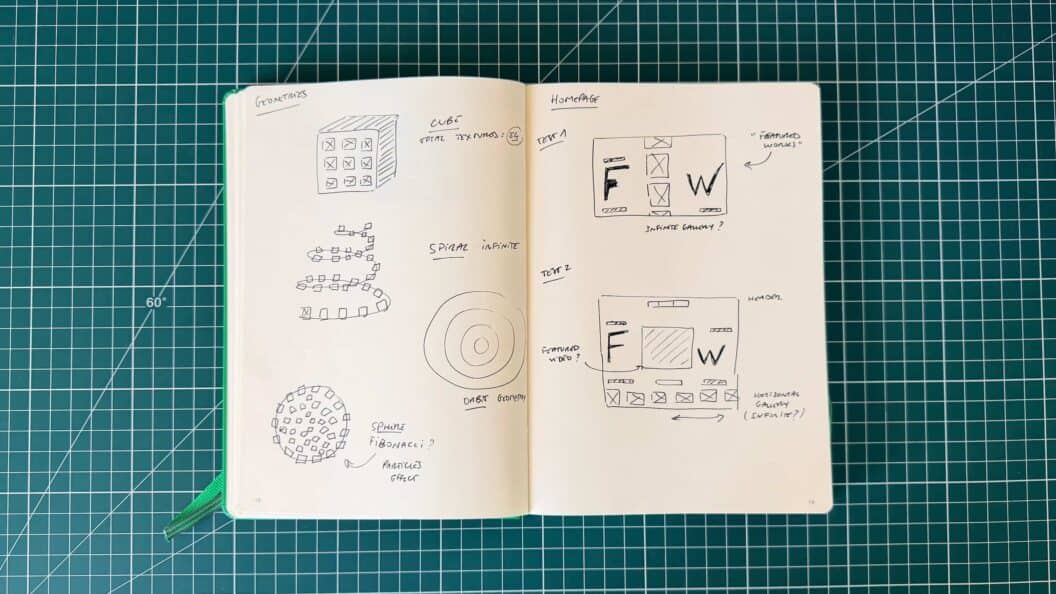 GEOMETRIES
CUBE
TOTAL TEXTURES: 54
SPIRAL INFINITE
ORBIT GEOMETRY
SPHERE
FIBONACCI?
PARTICLES
EFFECT
60°
HOMEPAGE
TEST 1
F
W
"FEATURED
WORKS"
INFINITE GALLERY?
TEST 2
HEADER
F
W
FEATURED
VIDEO?
HORIZONTAL
GALLERY
(INFINITE?)